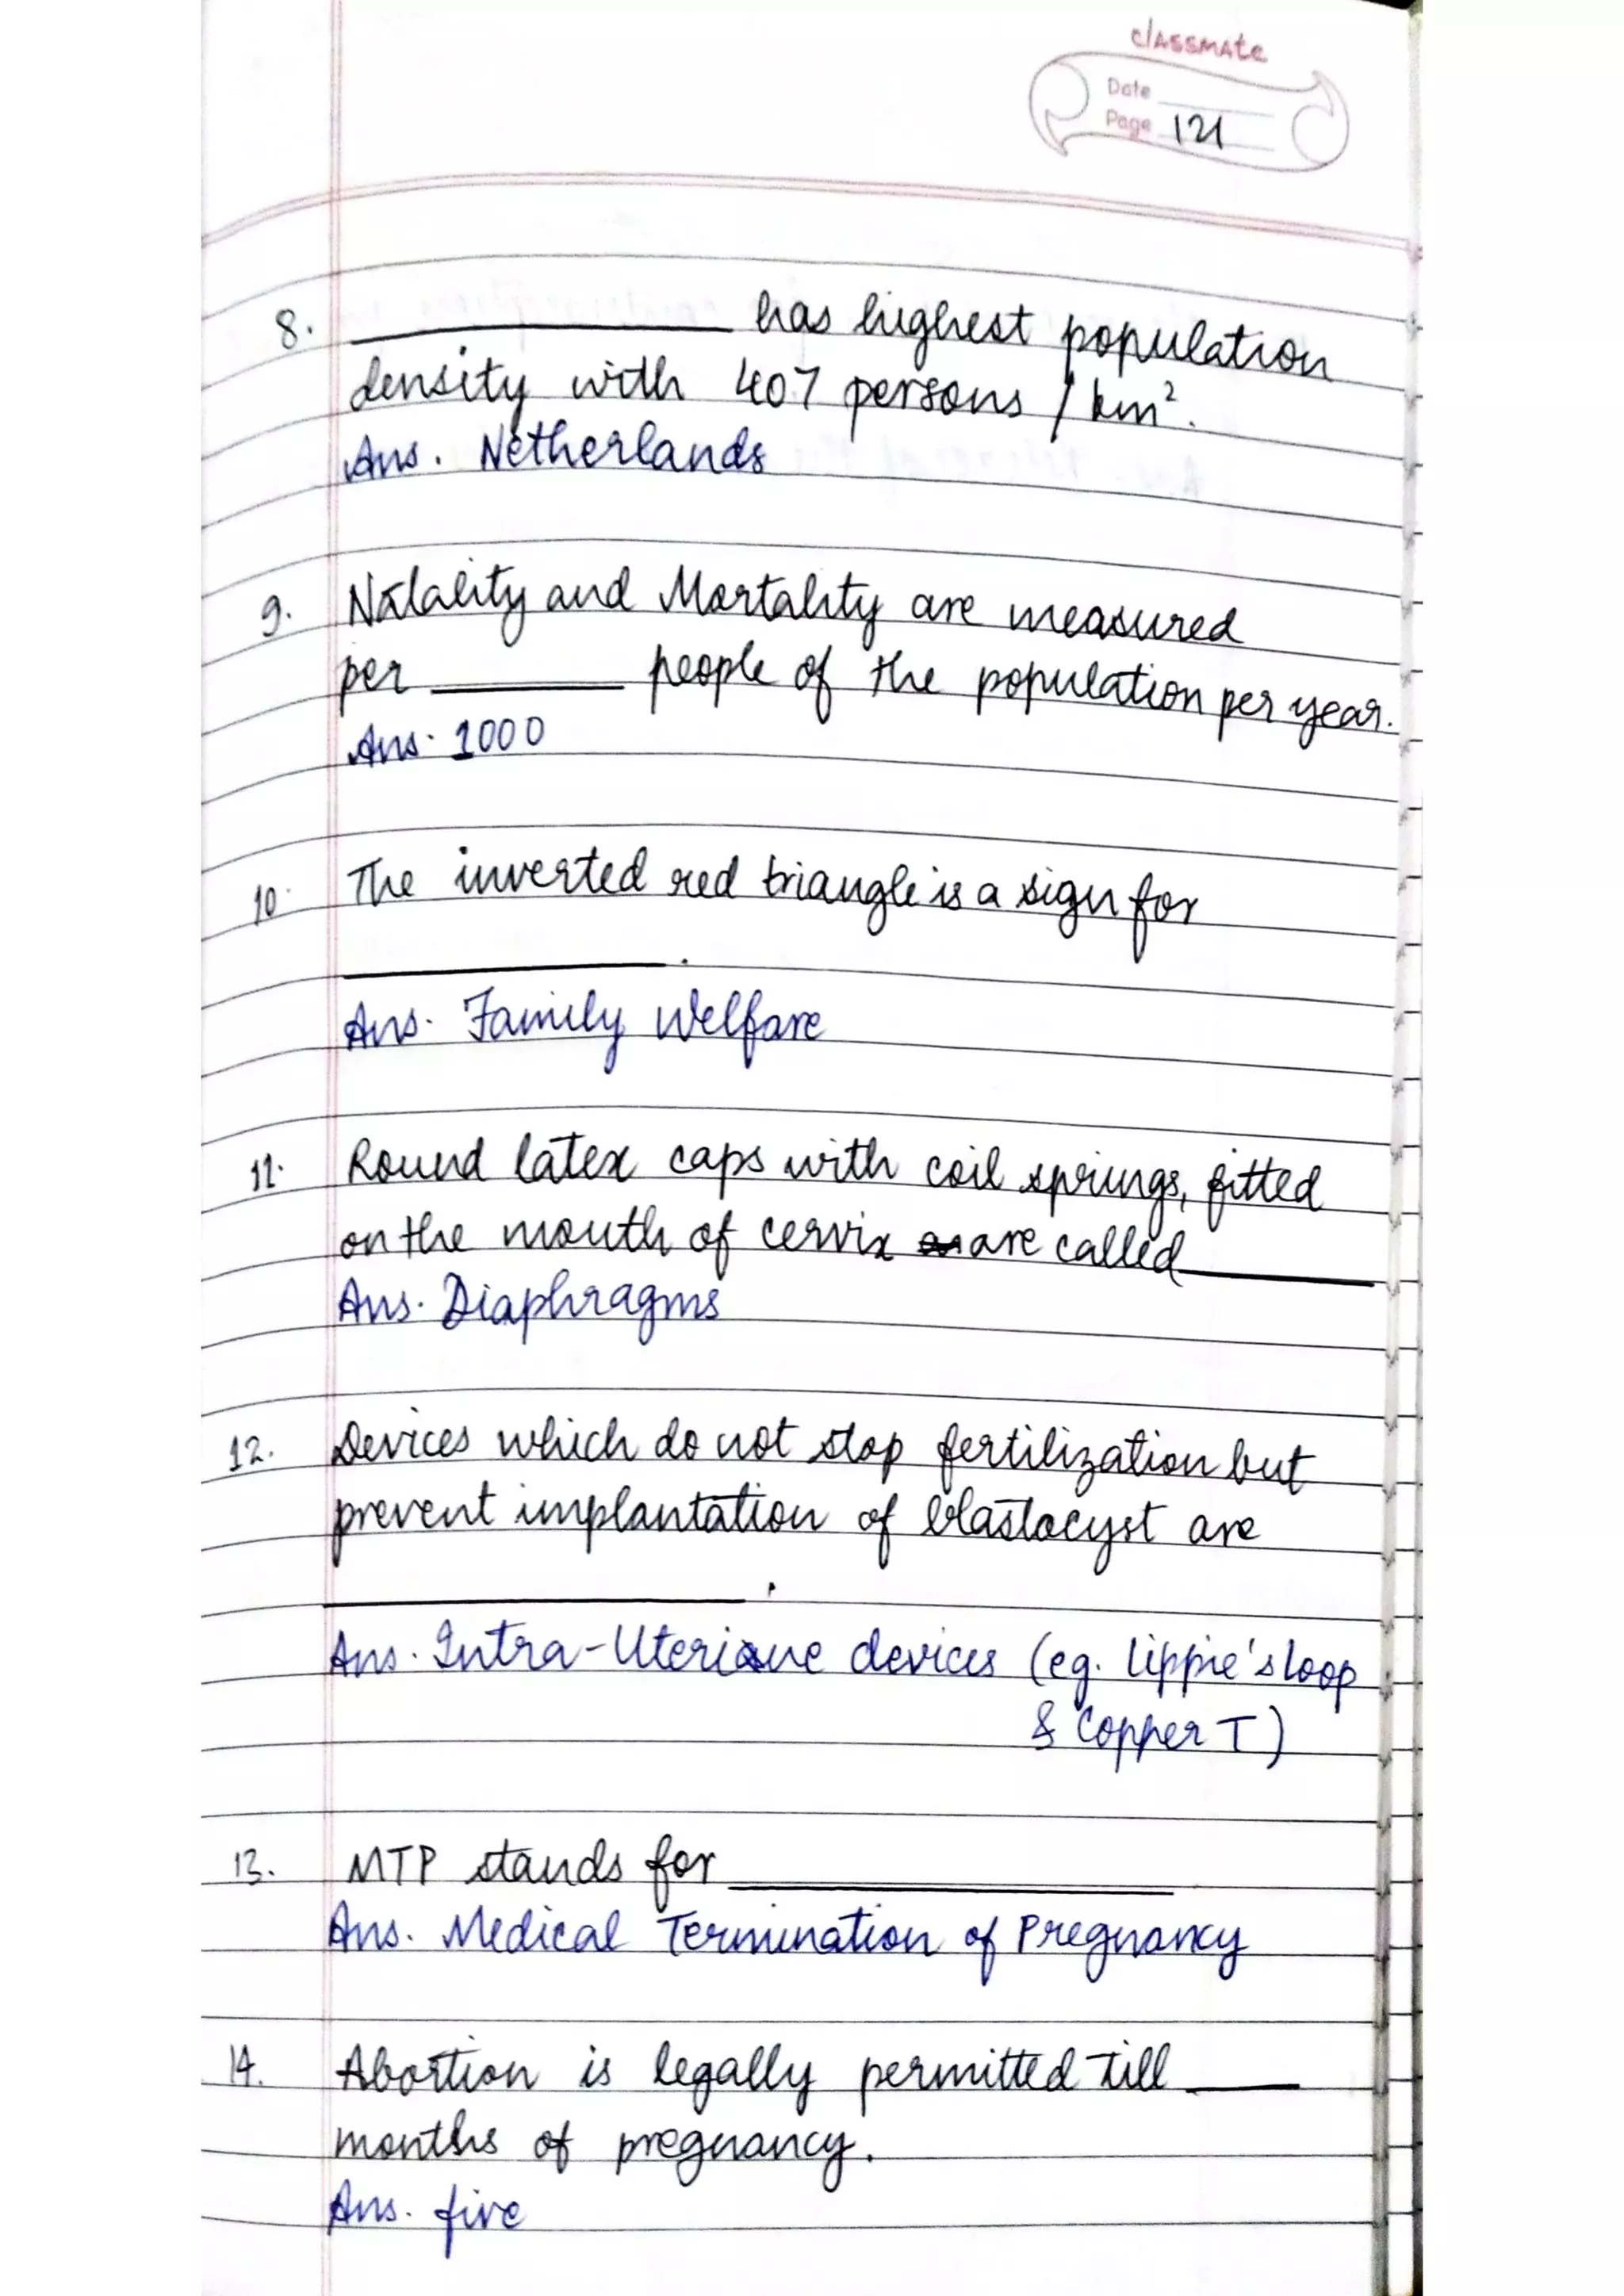 classmate
Date
Page 121
8. __________ has highest population
density with 407 persons / km².
Ans. Netherlands
9. Natality and Mortality are measured
per ______ people of the population per year.
Ans. 1000
10. The inverted red triangle is a sign for
__________.
Ans. Family Welfare
11. Round latex caps with coil springs, fitted
on the mouth of cervix are called ______
Ans. Diaphragms
12. Devices which do not stop fertilization but
prevent implantation of blastocyst are
__________.
Ans. Intra-Uterine devices (eg. lippie's loop
& Copper T)
13. MTP stands for __________
Ans. Medical Termination of Pregnancy
14. Abortion is legally permitted till ____
months of pregnancy.
Ans. five